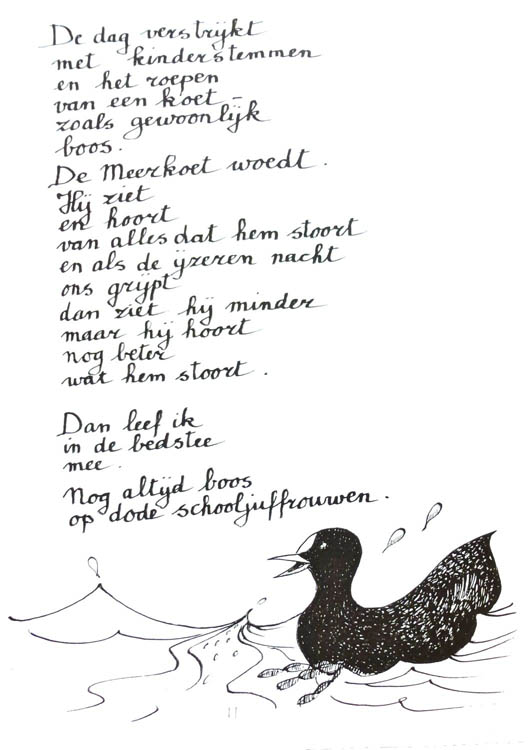 De dag verstrijkt
met kinderstemmen
en het roepen
van een koet –
zoals gewoonlijk
boos.
De Meerkoet woedt.
Hij ziet
en hoort
van alles dat hem stoort
en als de ijzeren nacht
ons grijpt
dan ziet hij minder
maar hij hoort
nog beter
wat hem stoort.
Dan leef ik
in de bedstee
mee.
Nog altijd boos
op dode schooljuffrouwen.
11